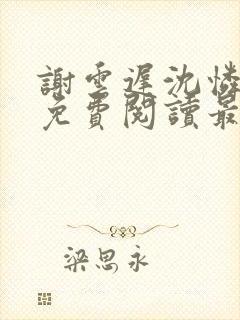 謝雲遲沈憐
免費閱讀最
梁思永